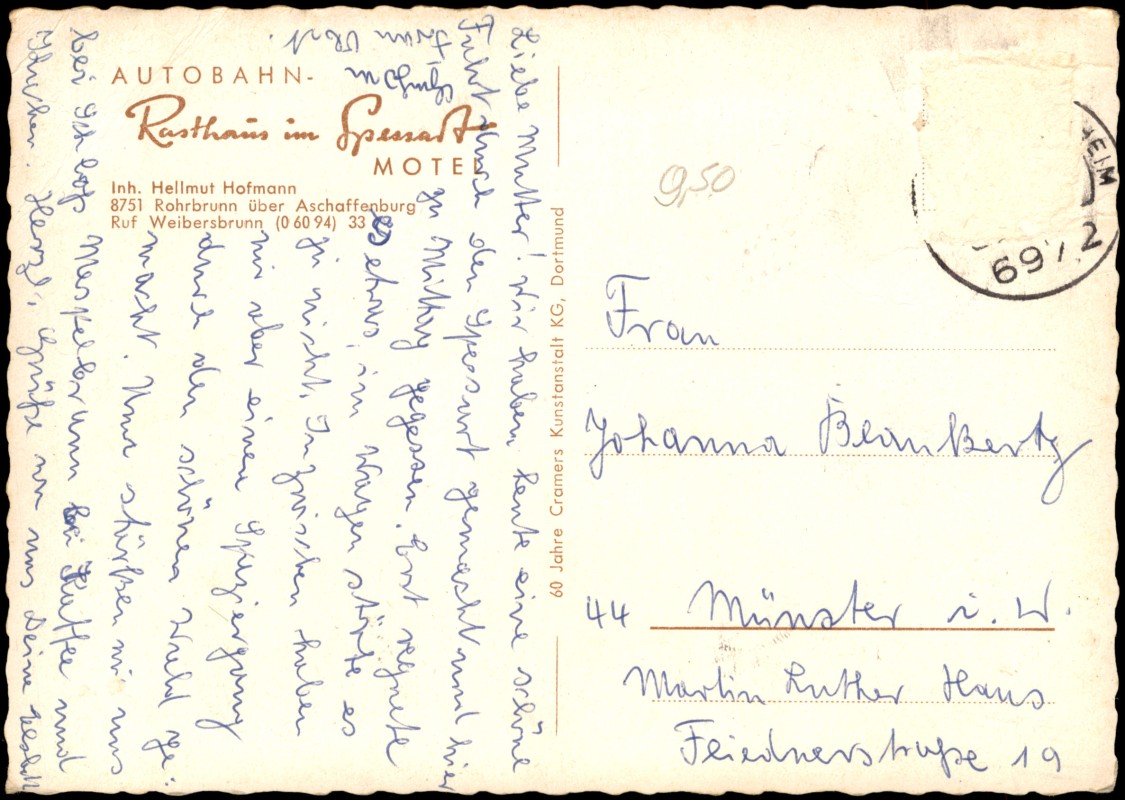 AUTOBAHN-
Rasthaus im Spessart
MOTEL
Inh. Hellmut Hofmann
8751 Rohrbrunn über Aschaffenburg
Ruf Weibersbrunn (0 60 94) 33
Liebe Mutter! Wir haben heute eine schöne
Fahrt durch den Spessart gemacht und hier
zu Mittag gegessen. Erst regnete
es etwas, im Wagen störte es
ja nicht. Inzwischen haben
wir aber einen Spaziergang
durch den schönen Wald ge-
macht. Nun stärken wir uns
bei Schloß Mespelbrunn bei Kaffee und
Kuchen. Herzl. Grüße von uns Deine
60 Jahre Cramers Kunstanstalt KG, Dortmund
9,50
HEIM
2
Frau
Johanna Blankertz
44 Münster i. W.
Martin Luther Haus
Fliednerstraße 19